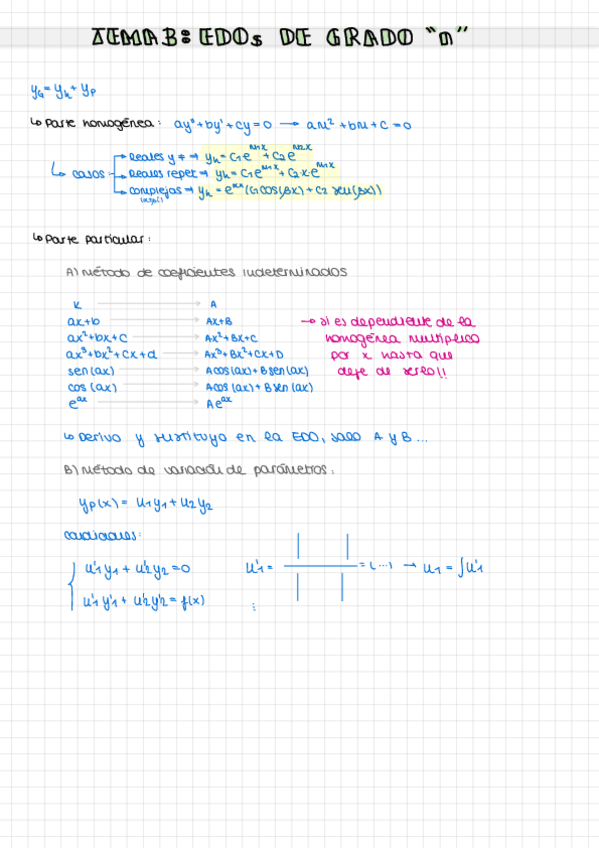 TEMA 3: EDOs DE GRADO "n"
y_G = y_h + y_p
↳ Parte homogénea: ay'' + by' + cy = 0 → am² + bm + c = 0
↳ casos
→ Reales y ≠ ⇒ y_h = C₁e^{m₁x} + C₂e^{m₂x}
→ Reales repet ⇒ y_h = C₁e^{m₁x} + C₂x·e^{m₁x}
→ complejas ⇒ y_h = e^{αx}(C₁cos(βx) + C₂ sen(βx))
↳ Parte particular:
A) Método de coeficientes indeterminados
K → A
ax+b → Ax+B
ax²+bx+c → Ax²+Bx+C
ax³+bx²+cx+d → Ax³+Bx²+Cx+D
sen(ax) → Acos(ax)+Bsen(ax)
cos(ax) → Acos(ax)+Bsen(ax)
e^{ax} → Ae^{ax}
→ si es dependiente de la
homogénea multiplico
por x hasta que
deje de serlo!!
↳ Derivo y sustituyo en la EDO, saco A y B...
B) Método de variación de parámetros:
y_p(x) = u₁y₁ + u₂y₂
condiciones:
u'₁y₁ + u'₂y₂ = 0
u'₁y'₁ + u'₂y'₂ = f(x)
u'₁ = | | / | | = (...) → u₁ = ∫u'₁
⋮